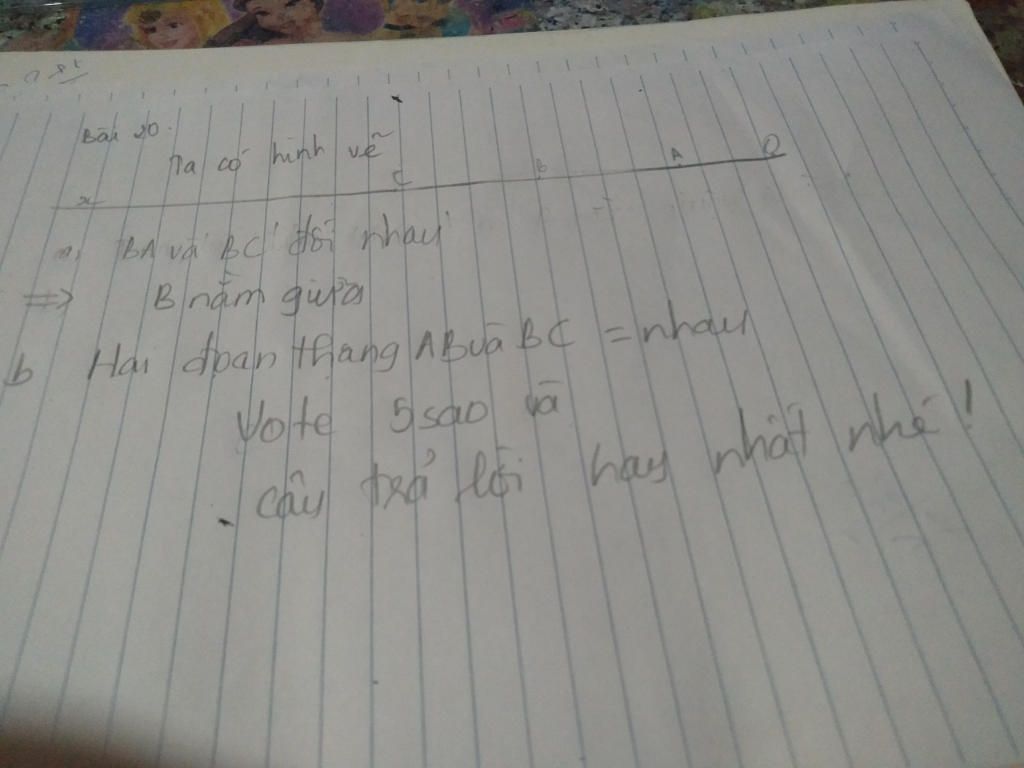 Bài 20.
Ta có hình vẽ
x C B A O
a, BA và BC đối nhau
=> B nằm giữa
b Hai đoạn thẳng AB và BC = nhau
Vote 5 sao và
câu trả lời hay nhất nhé!